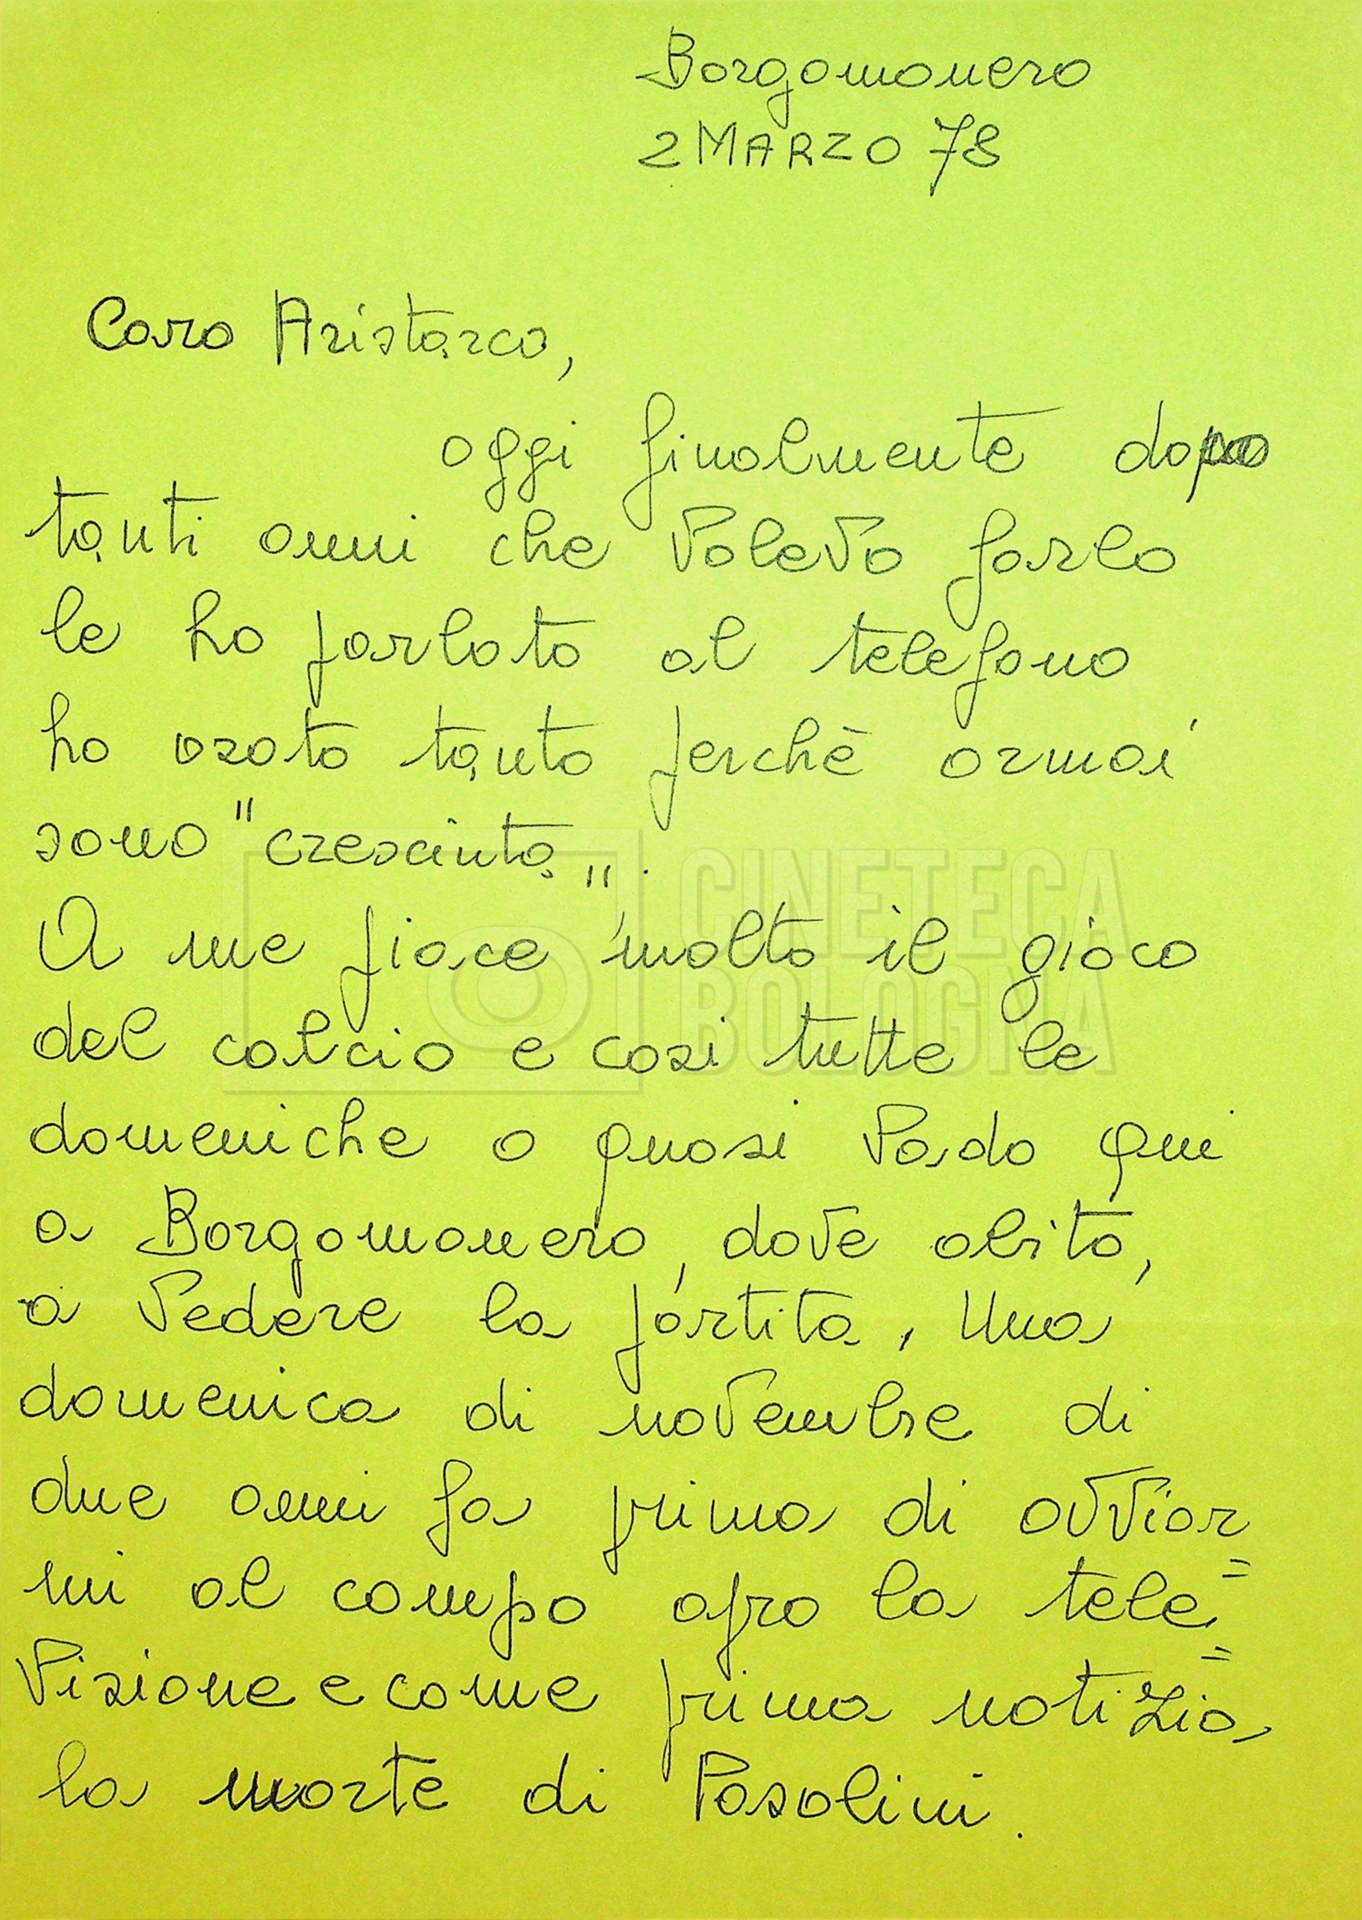 Borgomanero
2 MARZO 78
Caro Aristarco,
oggi finalmente dopo
tanti anni che volevo farlo
le ho parlato al telefono
ho osato tanto perchè ormai
sono "cresciuta".
A me piace molto il gioco
del calcio e così tutte le
domeniche o quasi vado qui
a Borgomanero, dove abito,
a vedere la partita, Una
domenica di novembre di
due anni fa prima di avviar=
mi al campo apro la tele=
visione e come prima notizia
la morte di Pasolini.
CINETECA
BOLOGNA